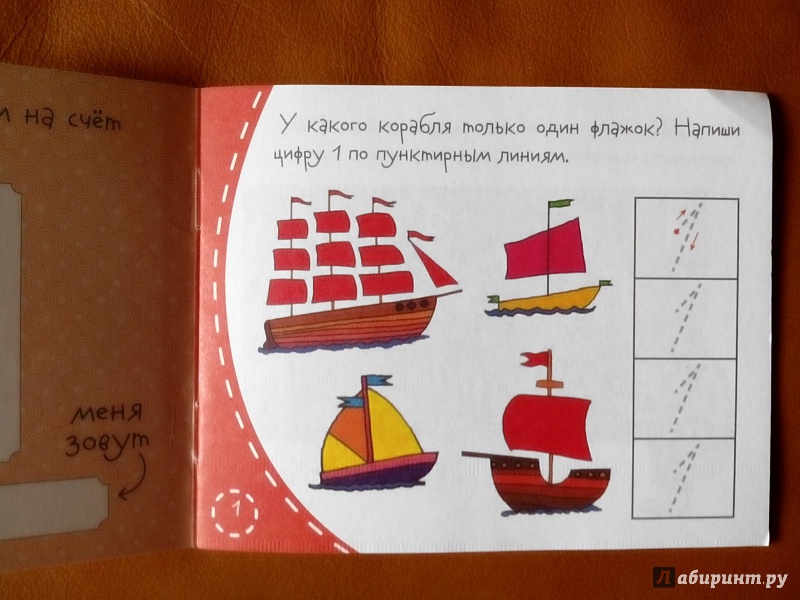 на счёт
меня
зовут
У какого корабля только один флажок? Напиши
цифру 1 по пунктирным линиям.
1
Лабиринт.ру